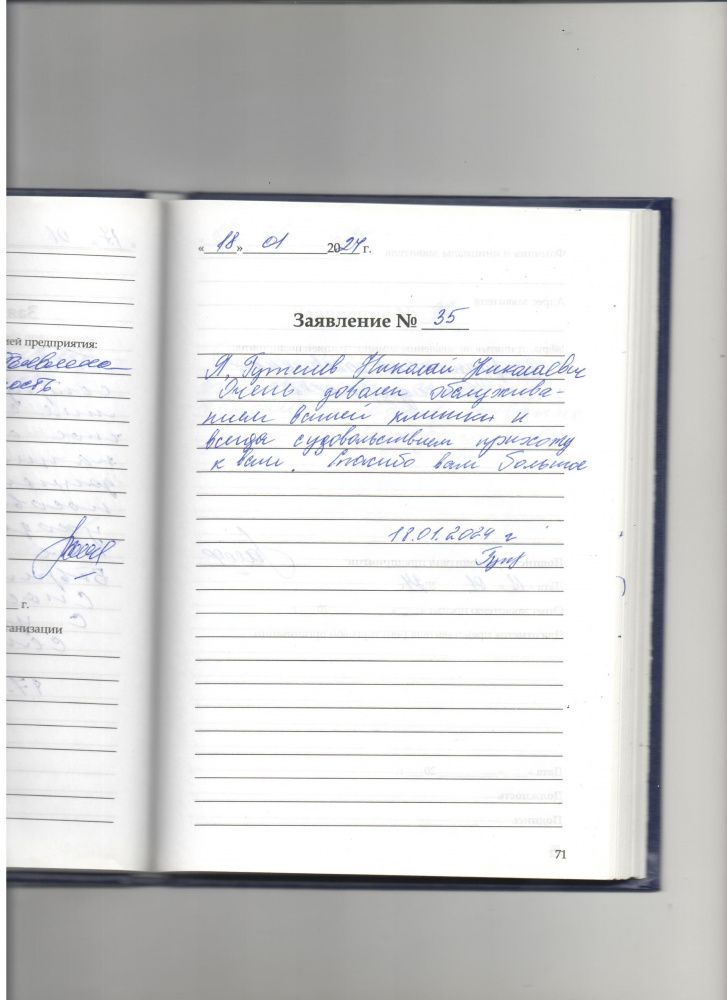 «18» 01 2024 г.
Заявление № 35
ией предприятия:
ность
Я, Николай Николаевич
Очень доволен обслужива-
нием вашей клиники и
всегда с удовольствием прихожу
к вам. Спасибо вам большое
18.01.2024 г
г.
ганизации
71